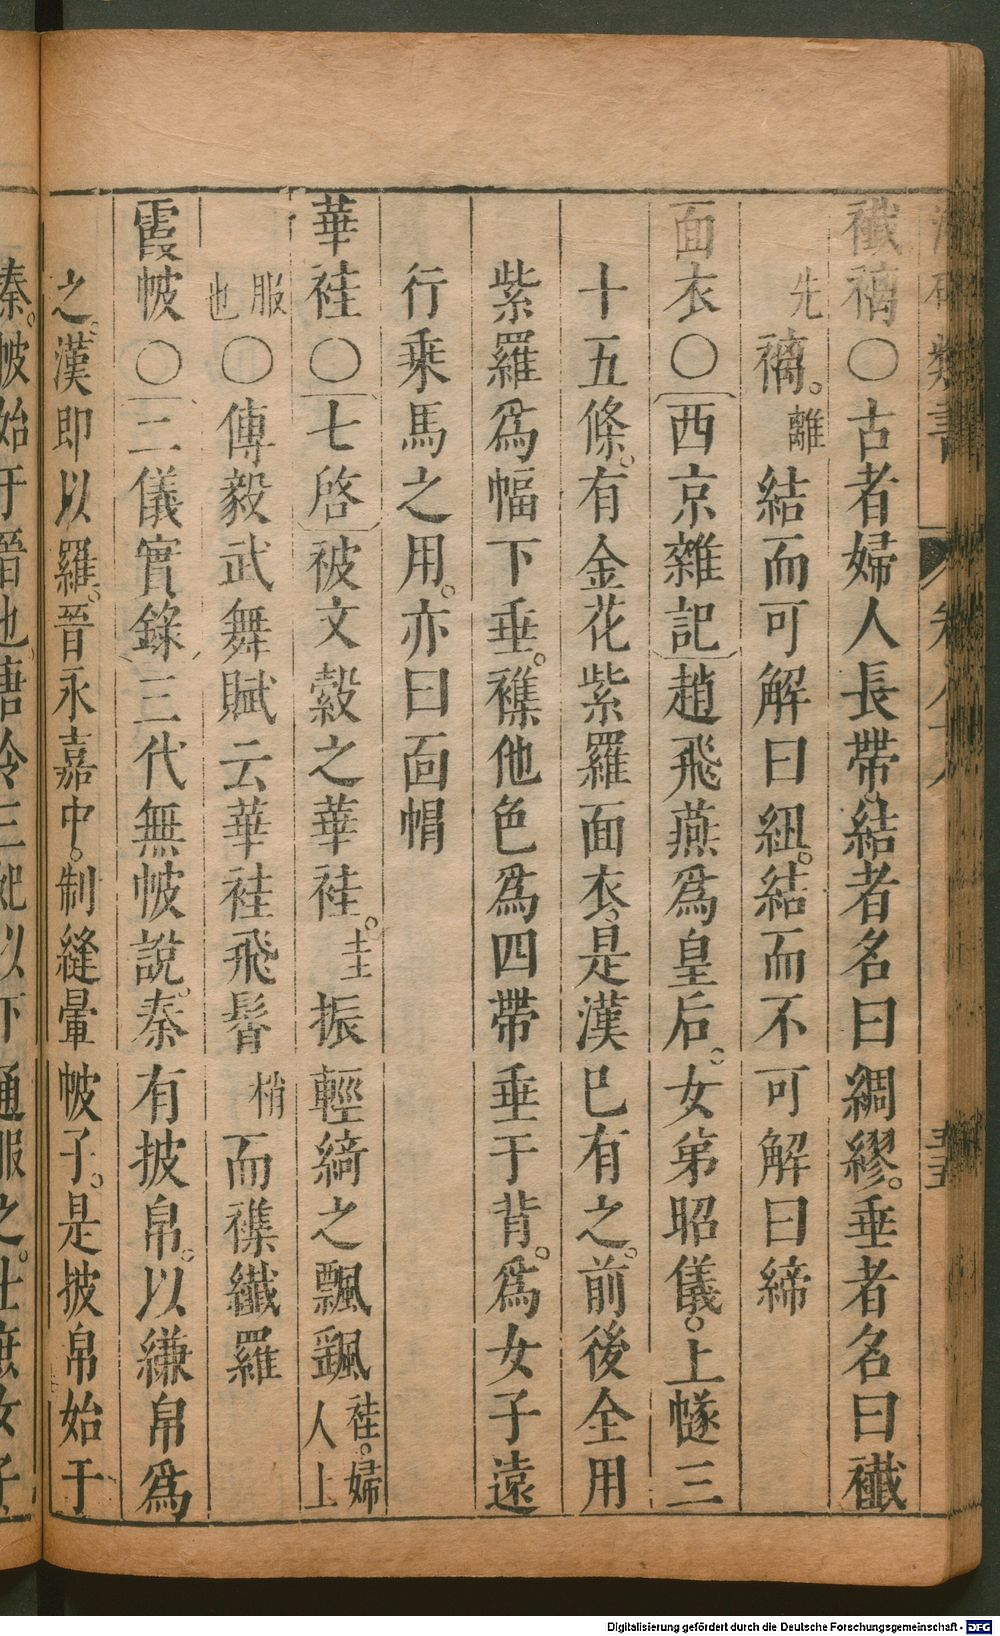 襳褵〇古者婦人長帶。結者名曰綢繆。垂者名曰襳
先褵。離結而可解曰紐。結而不可解曰締
面衣〇西京雜記趙飛燕爲皇后。女弟昭儀。上襚三
十五條。有金花紫羅面衣。是漢已有之。前後全用
紫羅爲幅下垂。襍他色爲四帶垂于背。爲女子遠
行乘馬之用。亦曰面帽
華袿〇七啓被文縠之華袿。圭振輕綺之飄颻袿。婦人上
服也〇傅毅武舞賦云華袿飛髾梢而襍纖羅
霞帔〇二儀實錄三代無帔說。秦有披帛。以縑帛爲
之。漢即以羅。晉永嘉中。制縫暈帔子。是披帛始于
秦。帔始于晉也。唐令三妃以下通服之。士庶女子
五五
Digitalisierung gefördert durch die Deutsche Forschungsgemeinschaft - DFG